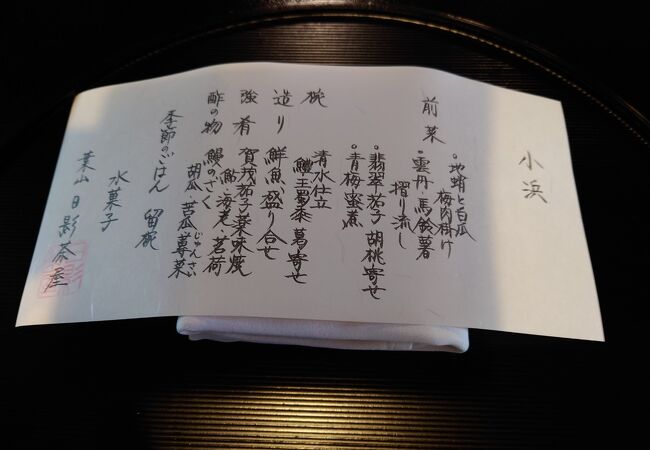 小浜
前菜
・地蛸と白瓜
梅肉掛け
・雲丹・馬鈴薯
摺り流し
・翡翠茄子 胡桃寄せ
・青梅蜜煮
椀
清水仕立
鱧玉蜀黍 葛寄せ
造り 鮮魚盛り合せ
強肴 賀茂茄子薬味焼
鮎・海老・茗荷
酢の物 鰻のざく
胡瓜・苦瓜蓴菜
じゅんさい
季節のごはん 留椀
水菓子
葉山 日影茶屋